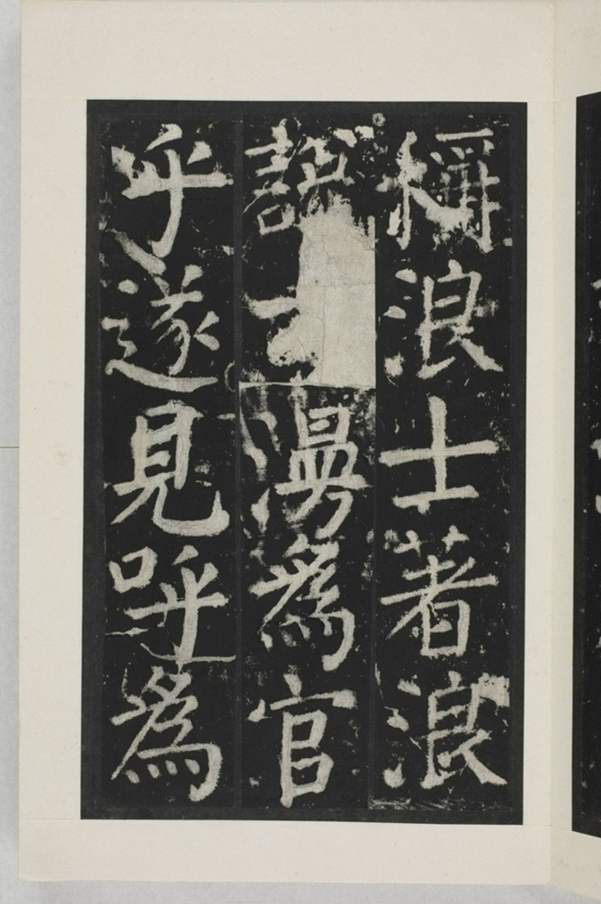 稱浪士著浪
說漫爲官
乎遂見呼爲